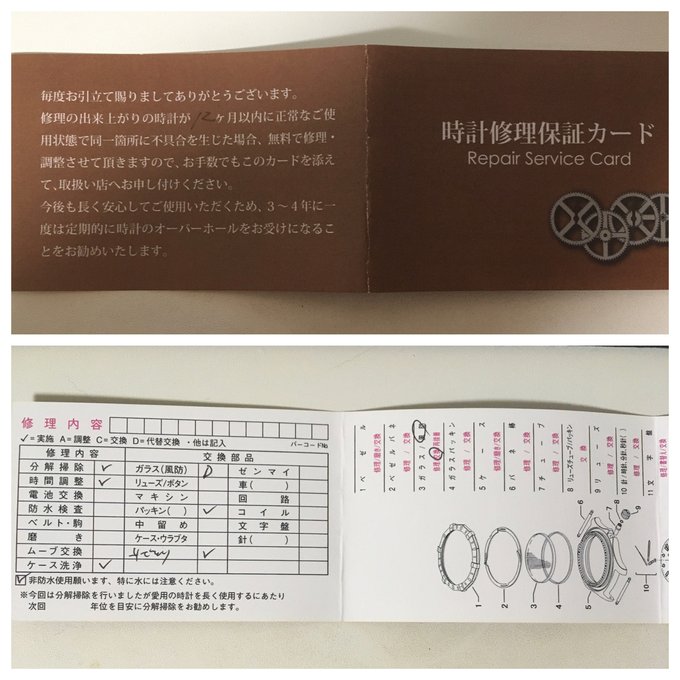 毎度お引立て賜りましてありがとうございます。
修理の出来上がりの時計が12ヶ月以内に正常なご使
用状態で同一箇所に不具合を生じた場合、無料で修理・
調整させて頂きますので、お手数でもこのカードを添え
て、取扱い店へお申し付けください。
今後も長く安心してご使用いただくため、3～4年に一
度は定期的に時計のオーバーホールをお受けになるこ
とをお勧めいたします。
時計修理保証カード
Repair Service Card
修理内容
✓=実施 A=調整 C=交換 D=代替交換 ・他は記入
バーコードNo
修理内容 交換部品
分解掃除 ✓ ガラス(風防) D ゼンマイ
時間調整 ✓ リューズ/ボタン 車( )
電池交換 マキシン 回路
防水検査 パッキン( ) ✓ コイル
ベルト・駒 中留め 文字盤
磨き ケース・ウラブタ 針( )
ムーブ交換 ✓
ケース洗浄 ✓
✓非防水使用願います、特に水にはご注意ください。
※今回は分解掃除を行いましたが愛用の時計を長く使用するにあたり
次回 年位を目安に分解掃除をお勧めします。
1 ベゼル 修理/磨き/交換
2 ベゼルバネ 修理/交換
3 ガラス/風防 修理/交換/再接着
4 ガラスパッキン 修理/交換
5 ケース 修理/磨き/交換
6 バネ棒 修理/交換
7 チューブ 修理/交換
8 リューズチューブ/パッキン 交換
9 リューズ 修理/交換
10 針/時針、分針、秒針( )
11 文字盤 修理/書替え/交換
1
2
3
4
5
6
7
8
9
10